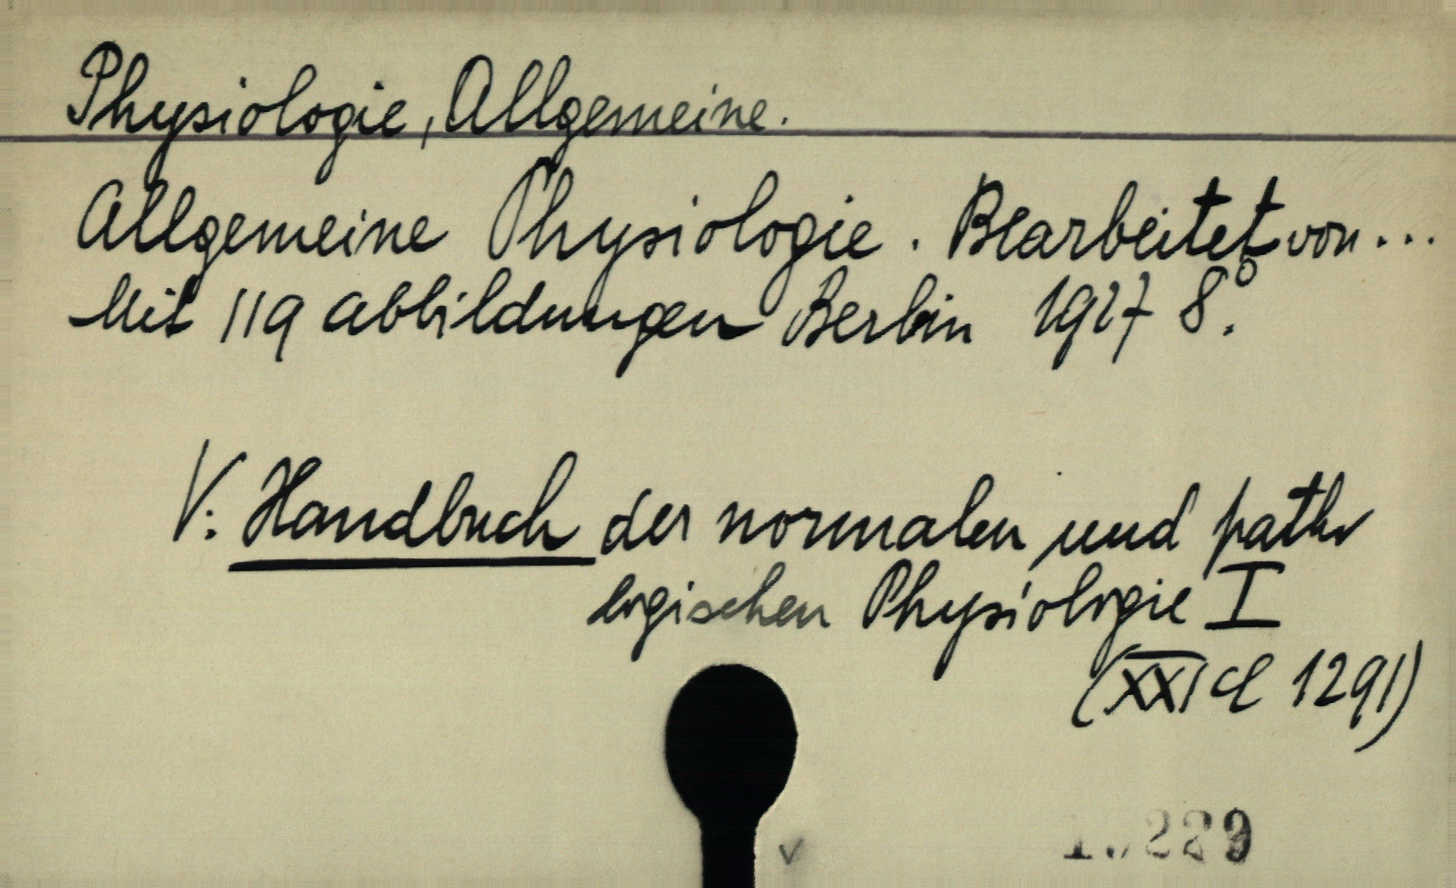 Physiologie, Allgemeine.
Allgemeine Physiologie. Bearbeitet von...
Mit 119 abbildungen Berlin 1927 8°.
V: Handbuch der normalen und patho
logischen Physiologie I
(XXI cl 1291)